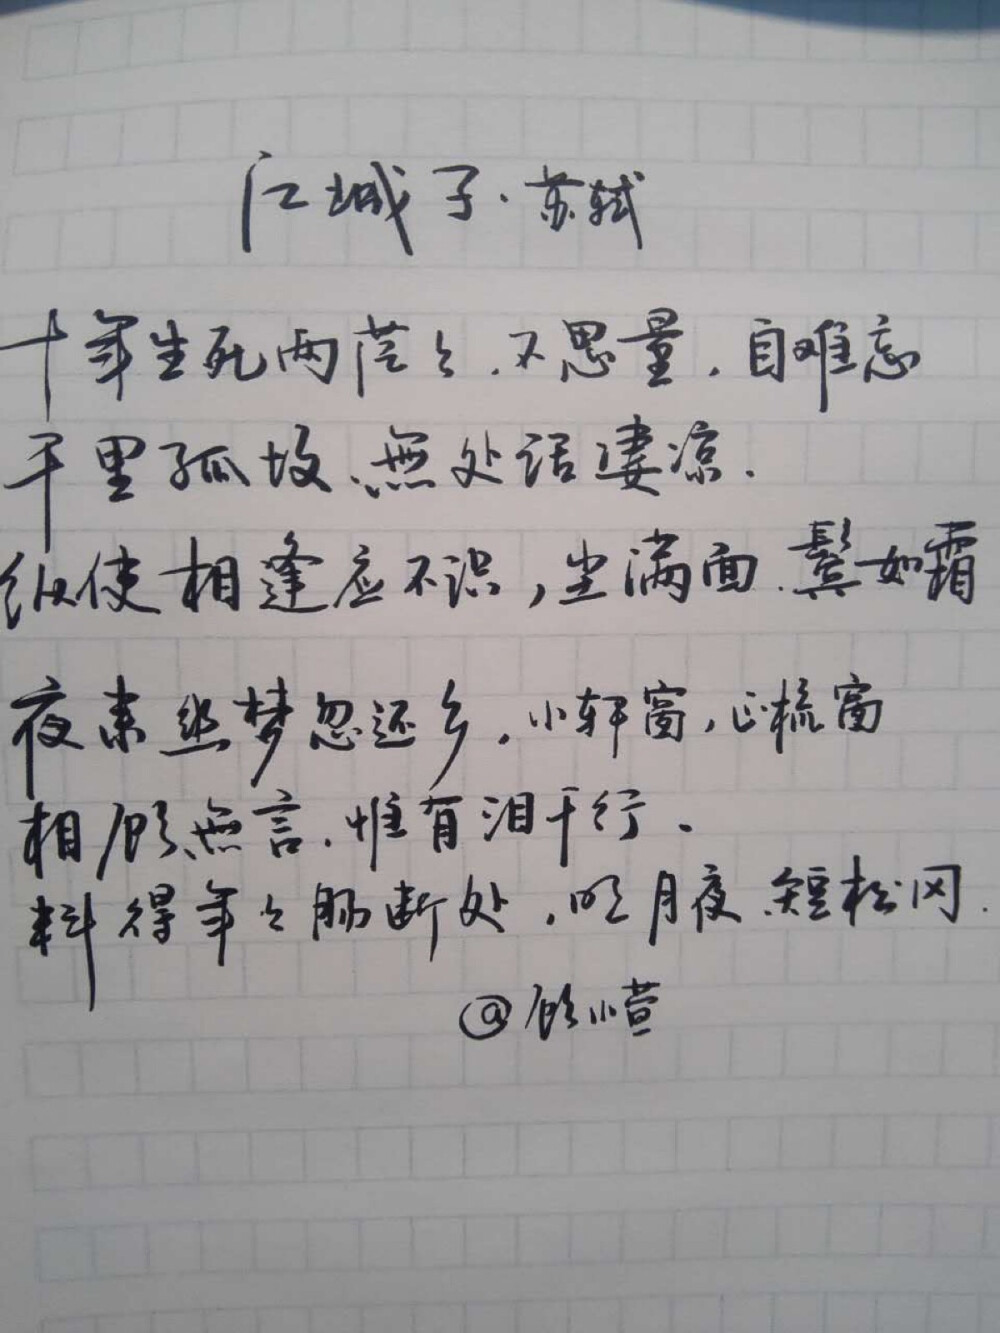 江城子·苏轼
十年生死两茫々.不思量.自难忘
千里孤坟、無处话凄凉.
纵使相逢应不识,尘满面.鬓如霜
夜来幽梦忽还乡.小轩窗,正梳窗
相顾無言.惟有泪千行.
料得年々肠断处.明月夜.短松冈.
@顾小萱